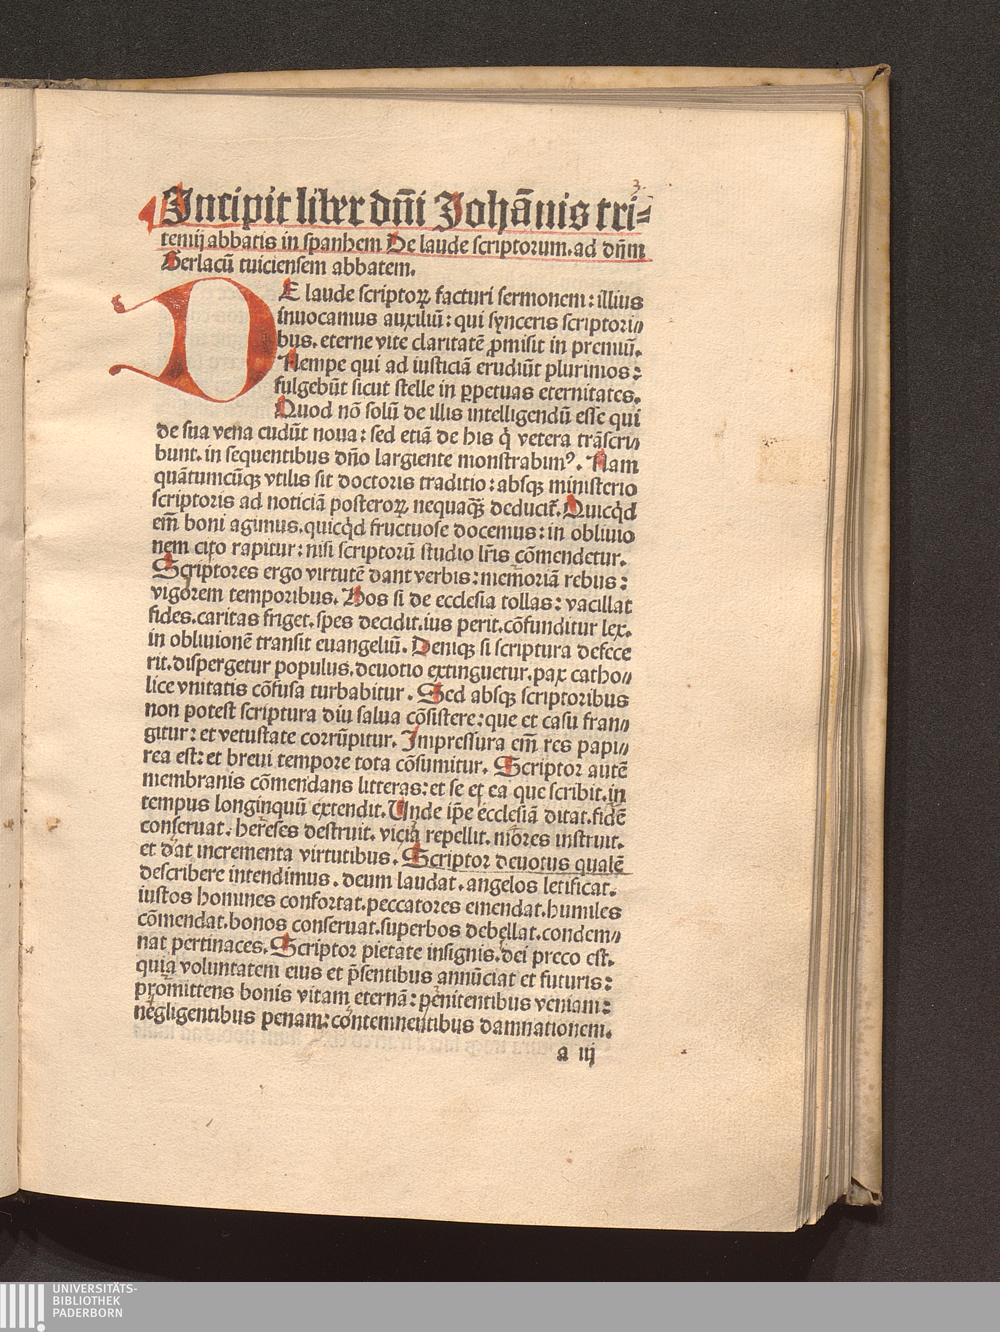 3.
Incipit liber dñi Johãnis tri⸗
temij abbatis in spanhem De laude scriptorum. ad dñm
Gerlacũ tuiciensem abbatem.
DE laude scriptoꝝ facturi sermonem: illius
inuocamus auxiliũ: qui synceris scriptori⸗
bus. eterne vite claritatẽ ꝓmisit in premiũ.
Nempe qui ad iusticiã erudiũt plurimos:
fulgebũt sicut stelle in ꝑpetuas eternitates.
Quod nõ solũ de illis intelligendũ esse qui
de sua vena cudũt noua: sed etiã de his q̇ vetera trãscri⸗
bunt. in sequentibus dño largiente monstrabimꝰ. Nam
quãtumcũqꝫ vtilis sit doctoris traditio: absqꝫ ministerio
scriptoris ad noticiã posteroꝝ nequaꝙ̃ deducit̃. Quicq̇d
em̃ boni agimus. quicq̇d fructuose docemus: in obliuio
nem cito rapitur: nisi scriptorũ studio lr̃is cõmendetur.
Scriptores ergo virtutẽ dant verbis: memoriã rebus:
vigorem temporibus. Hos si de ecclesia tollas: vacillat
fides. caritas friget. spes decidit. ius perit. cõfunditur lex.
in obliuionẽ transit euangeliũ. Deniqꝫ si scriptura defece
rit. dispergetur populus. deuotio extinguetur. pax catho⸗
lice vnitatis cõfusa turbabitur. Sed absqꝫ scriptoribus
non potest scriptura diu salua cõsistere: que et casu fran⸗
gitur: et vetustate corrũpitur. Impressura em̃ res papi⸗
rea est: et breui tempore tota cõsumitur. Scriptor autẽ
membranis cõmendans litteras: et se et ea que scribit. in
tempus longinquũ extendit. Unde ip̃e ecclesiã ditat. fidẽ
conseruat. hereses destruit. vicia repellit. mores instruit.
et dat incrementa virtutibus. Scriptor deuotus qualẽ
describere intendimus. deum laudat. angelos letificat.
iustos homines confortat. peccatores emendat. humiles
cõmendat. bonos conseruat. superbos debellat. condem⸗
nat pertinaces. Scriptor pietate insignis. dei preco est.
quia voluntatem eius et p̃sentibus annũciat et futuris:
promittens bonis vitam eternã: penitentibus veniam:
negligentibus penam: contemnentibus damnationem.
a iij
UNIVERSITÄTS-
BIBLIOTHEK
PADERBORN